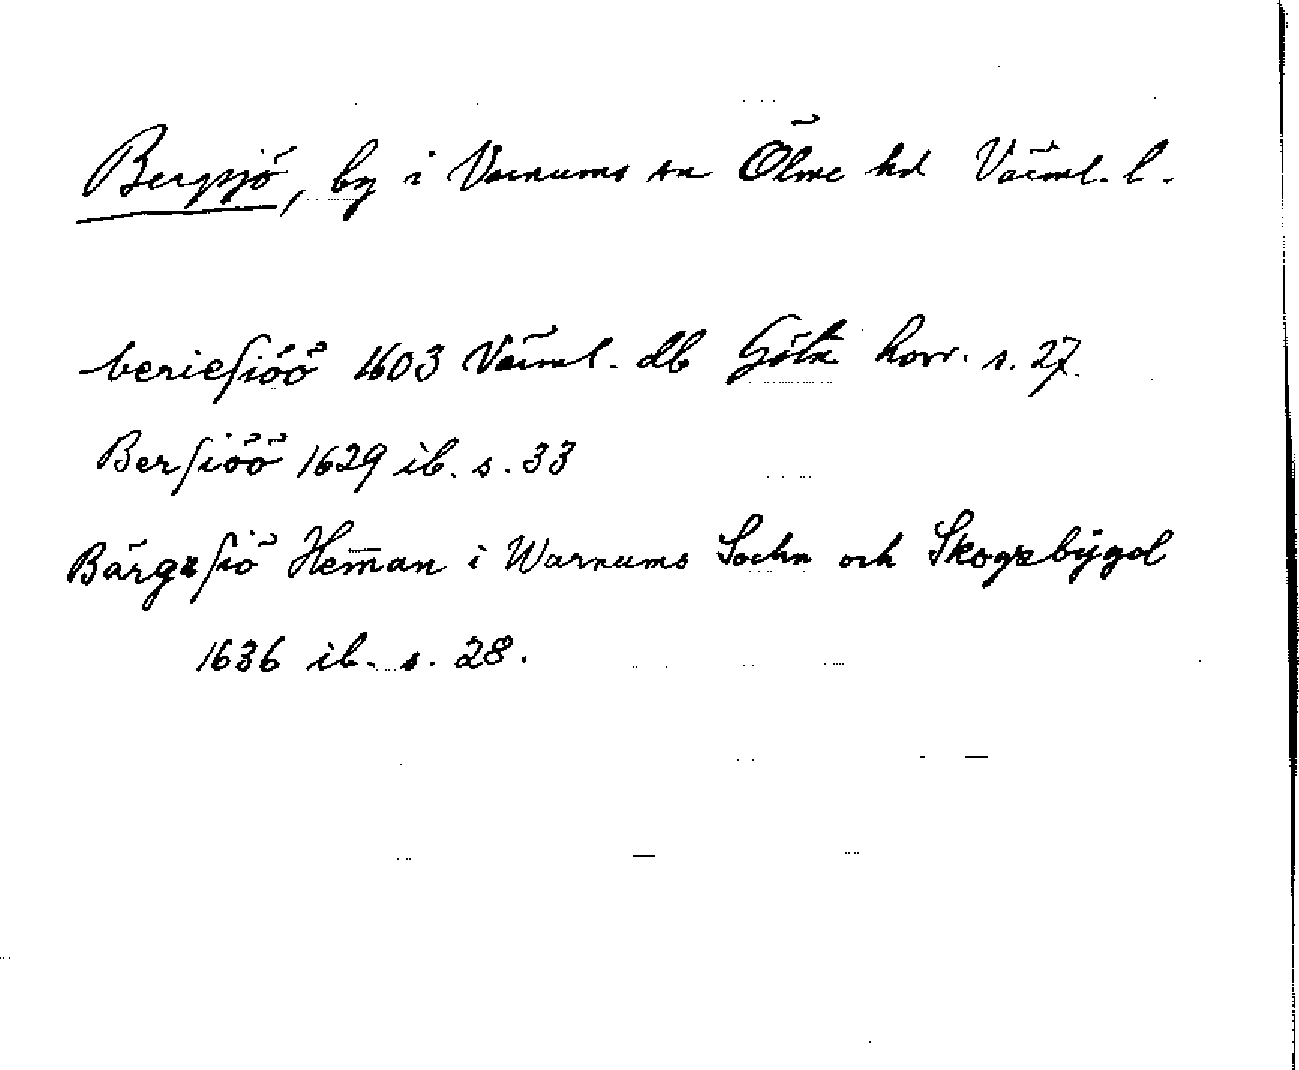 Bergsjö, by i Varnums sn Ölme hd Värml. l.
berieſiöö 1603 Värml. db Göta hovr. s. 27.
Berſiöö 1629 ib. s. 33
Bärgzſiö Hem̄an i Warnums Sochn och Skogzbÿgd
1636 ib. s. 28.